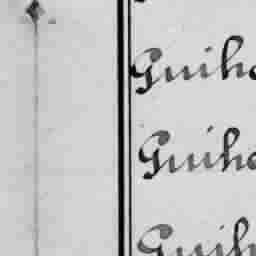 Guiho
Guiho
Guih